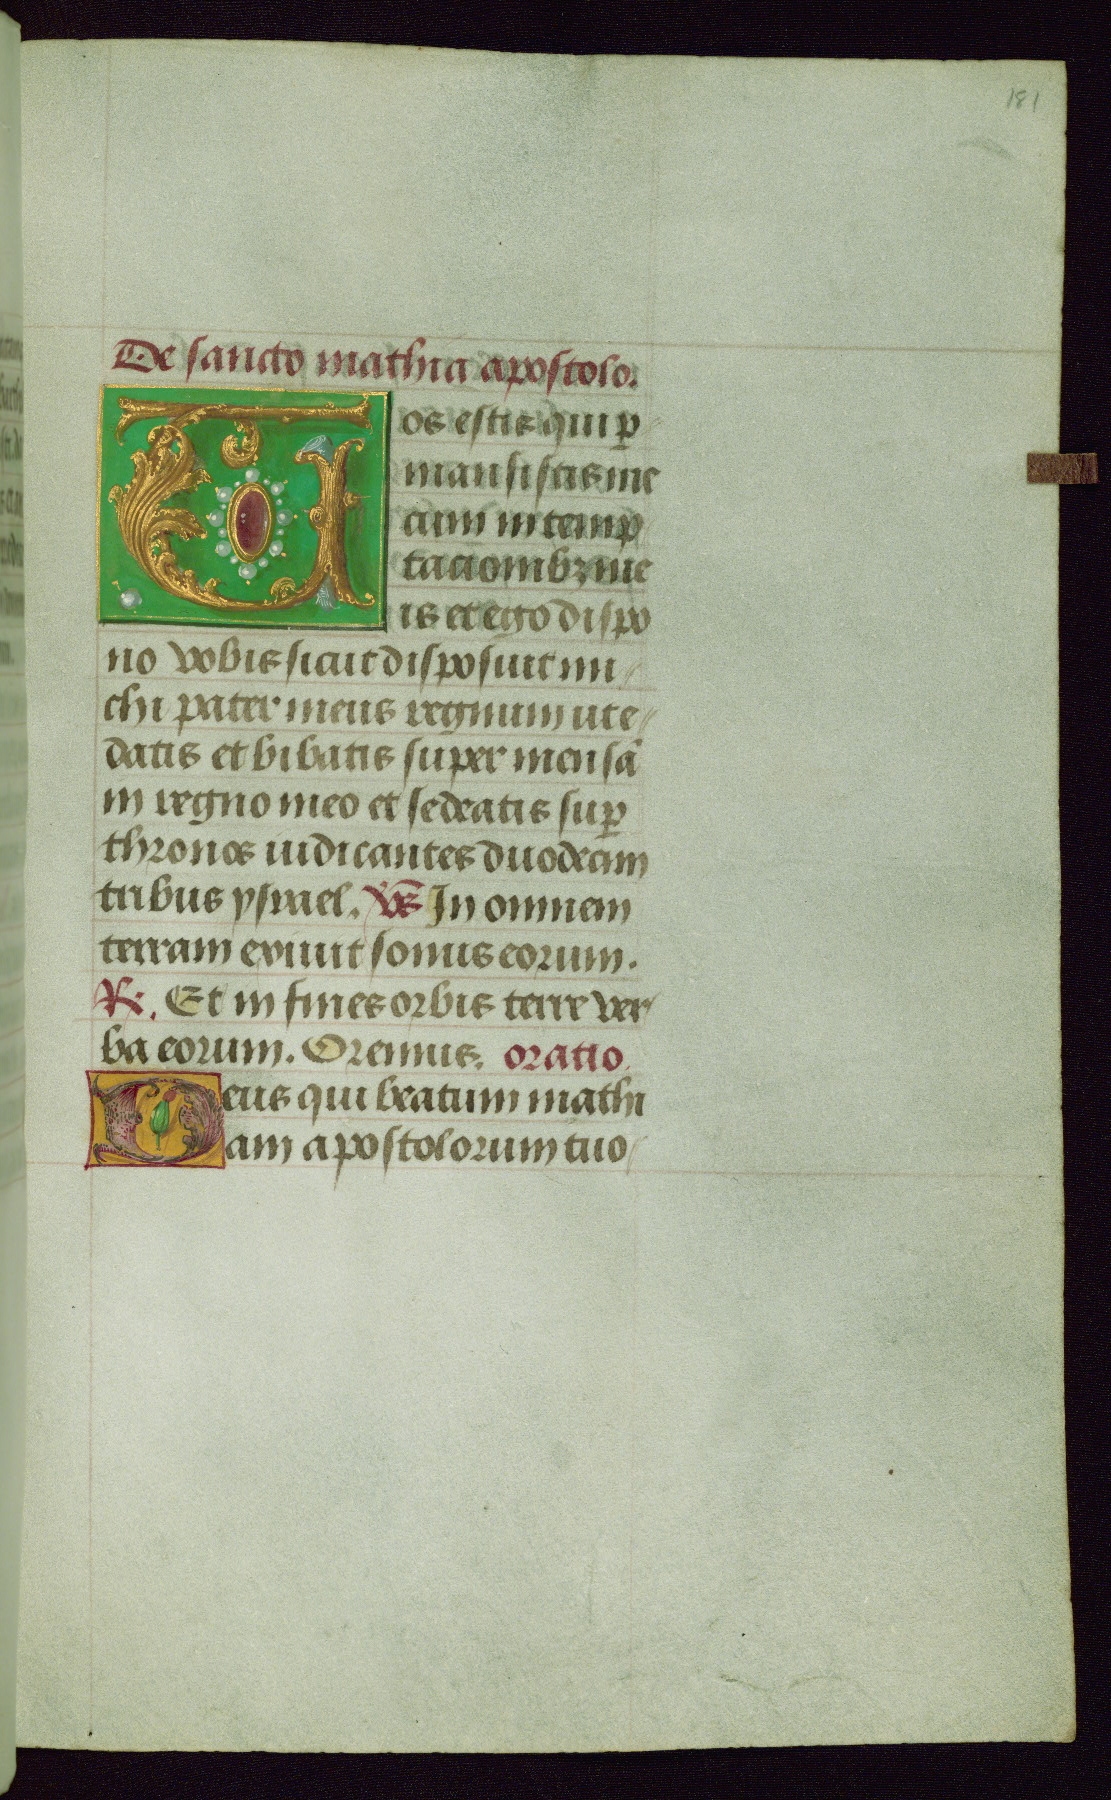 181
De sancto mathia apostolo.
Vos estis qui ꝑ
mansistis me
cum in temp
tacionibꝫ me
is et ego dispo
no vobis sicut disposuit mi
chi pater meus regnum ut e
datis et bibatis super mensā
in regno meo et sedeatis suꝑ
thronos iudicantes duodecim
tribus ysrael. Vs̄ In omnem
terram exiuit sonus eorum.
R. Et in fines orbis terre ver
ba eorum. Oremus. oratio.
Deus qui beatum mathi
am apostolorum tuo